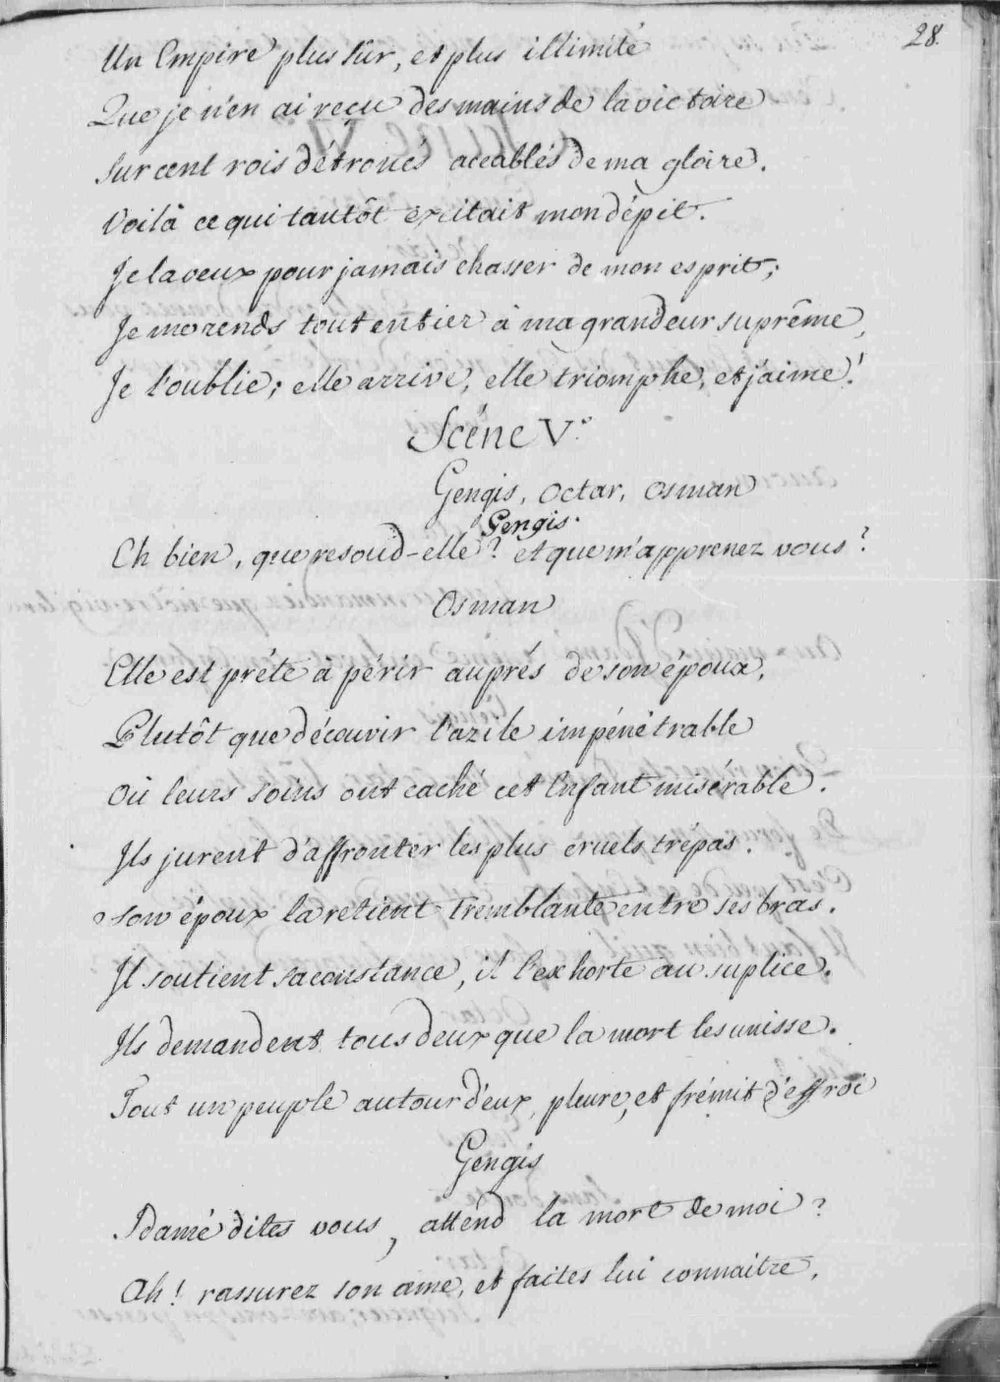 28.
Un Empire plus sûr, et plus illimité
Que je n'en ai reçu des mains de la victoire
Sur cent rois détronés accablés de ma gloire.
Voilà ce qui tantôt excitait mon dépit.
Je la veux pour jamais chasser de mon esprit;
Je me rends tout entier à ma grandeur suprême,
Je l'oublie; elle arrive, elle triomphe, et j'aime!
Scéne V.e
Gengis, Octar, Osman
Gengis.
Eh bien, que resoud-elle? et que m'apprenez vous?
Osman
Elle est prête à périr auprés de son époux,
Plutôt que découvrir l'azile impénétrable
Où leurs soins ont caché cet Enfant misérable.
Ils jurent d'affronter les plus cruels trépas.
Son époux la retient tremblante entre ses bras.
Il soutient sa constance, il l'exhorte au suplice.
Ils demandent tous deux que la mort les unisse.
Tout un peuple autour d'eux, pleure, et frémit d'effroi
Gengis
Idamé dites vous, attend la mort de moi?
Ah! rassurez son ame, et faites lui connaitre,